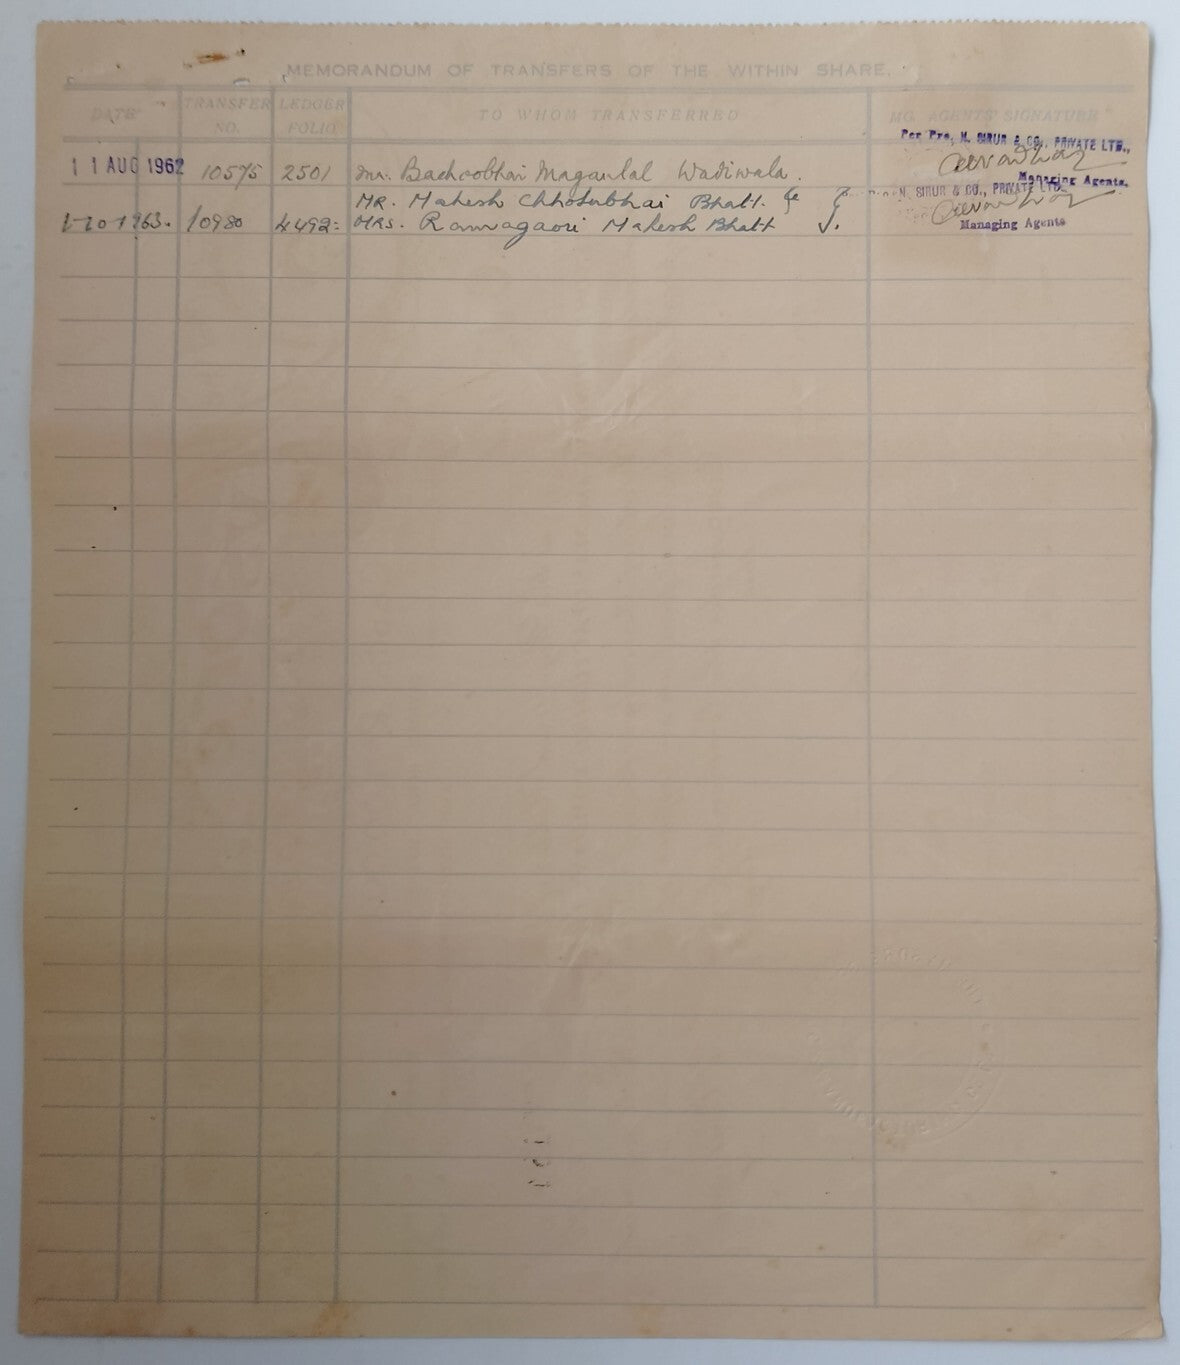 MEMORANDUM OF TRANSFERS OF THE WITHIN SHARE.
DATE TRANSFER NO. LEDGER FOLIO TO WHOM TRANSFERRED MG. AGENTS' SIGNATURE
Per Pro, N. SIRUR & CO., PRIVATE LTD.,
11 AUG 1962 10575 2501 Mr. Bachoobhai Maganlal Wadiwala.
Managing Agents.
MR. Mahesh Chhotubhai Bhatt. &
N. SIRUR & CO., PRIVATE LTD.
1963. 10980 4492 MRS. Ramagauri Mahesh Bhatt
Managing Agents